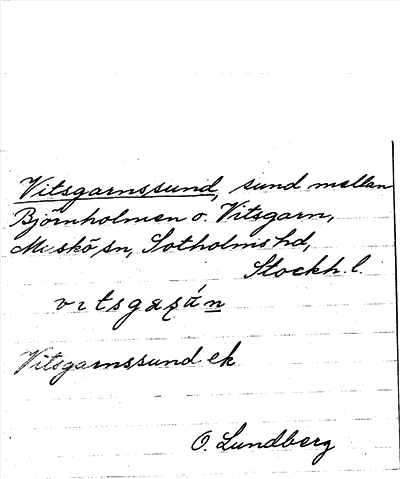 Vitsgarnssund, sund mellan
Björnholmen o. Vitsgarn,
Muskö sn, Sotholms hd,
Stockh. l.
vıtsgaʀán
Vitsgarnssund ek
O. Lundberg